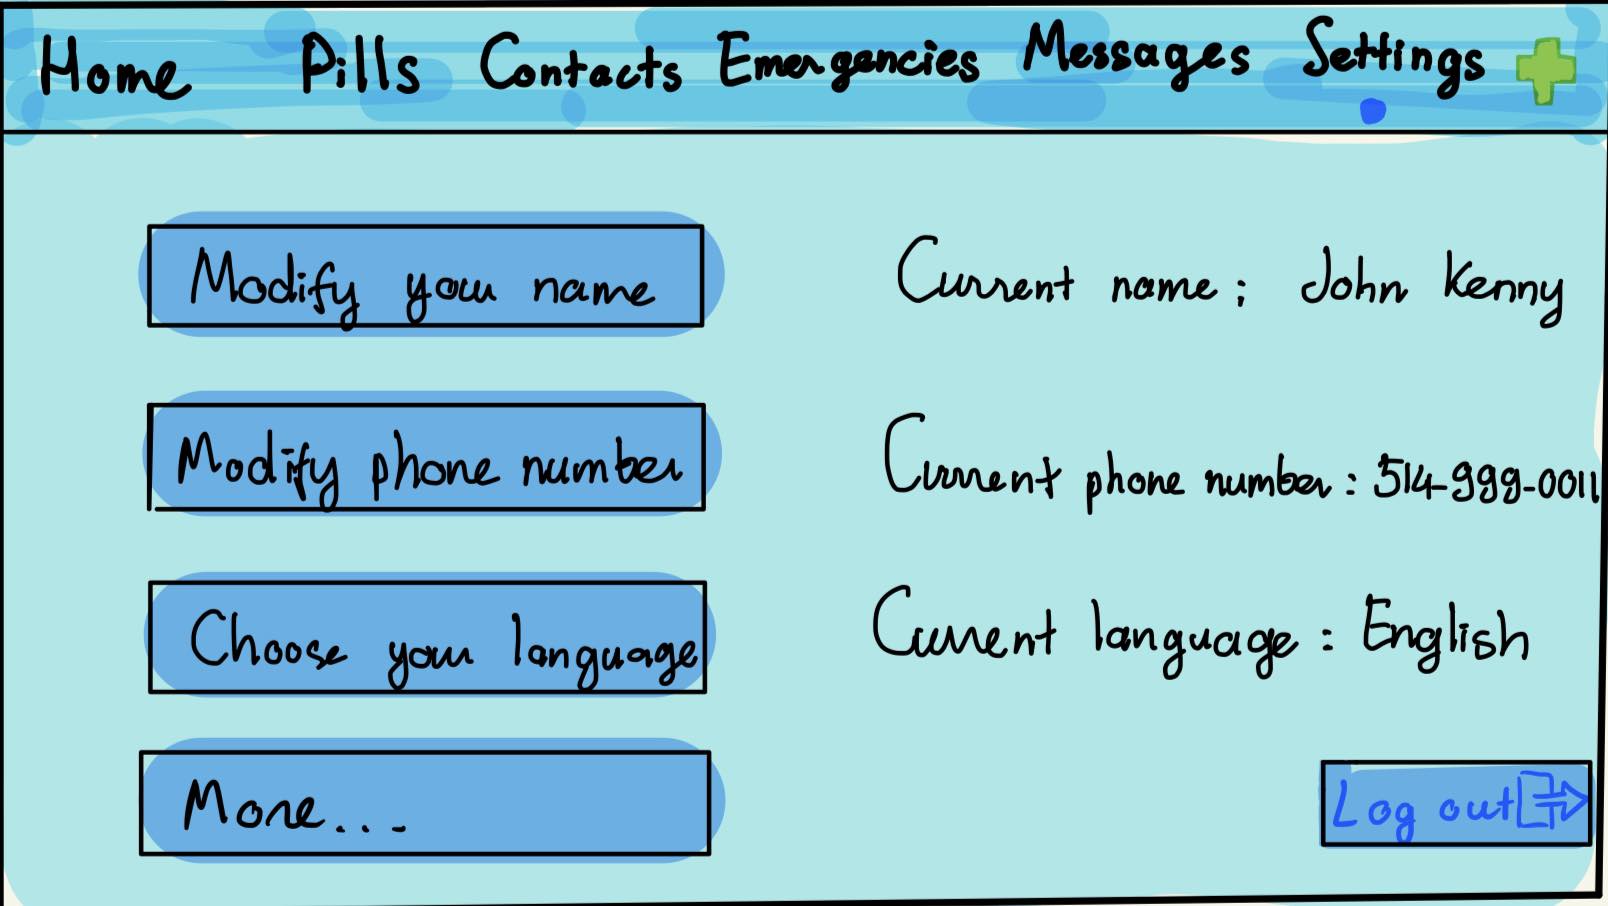 Home Pills Contacts Emergencies Messages Settings
Modify your name
Current name : John Kenny
Modify phone number
Current phone number : 514-999-0011
Choose your language
Current language : English
More...
Log out